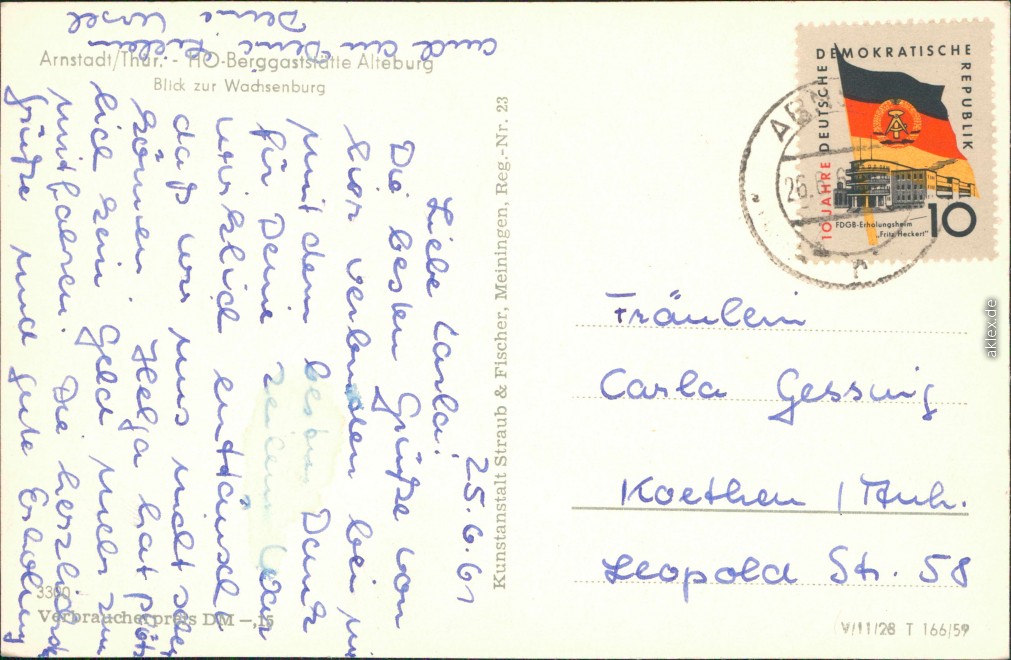 Arnstadt/Thür. - HO-Berggaststätte Alteburg
Blick zur Wachsenburg
25.6.61
Liebe Carla!
Die besten Grüße von
hier verbunden bei mir
mit dem besten Dank
für Deine Zeilen. War
wirklich enttäuscht
daß wir uns nicht sehen
können. Helga hat plötz-
lich kein Geld mehr zum
mitfahren. Die herzlichsten
Grüße und gute Erholung
auch an Deine Lieben
Deine Ursel
Kunstanstalt Straub & Fischer, Meiningen, Reg.-Nr. 23
3300
Verbraucherpreis DM -,15
10 JAHRE DEUTSCHE DEMOKRATISCHE REPUBLIK
FDGB-Erholungsheim
„Fritz Heckert"
10
26.6.6
Fräulein
Carla Gessing
Koethen / Anh.
Leopold Str. 58
V/11/28 T 166/59
aklex.de